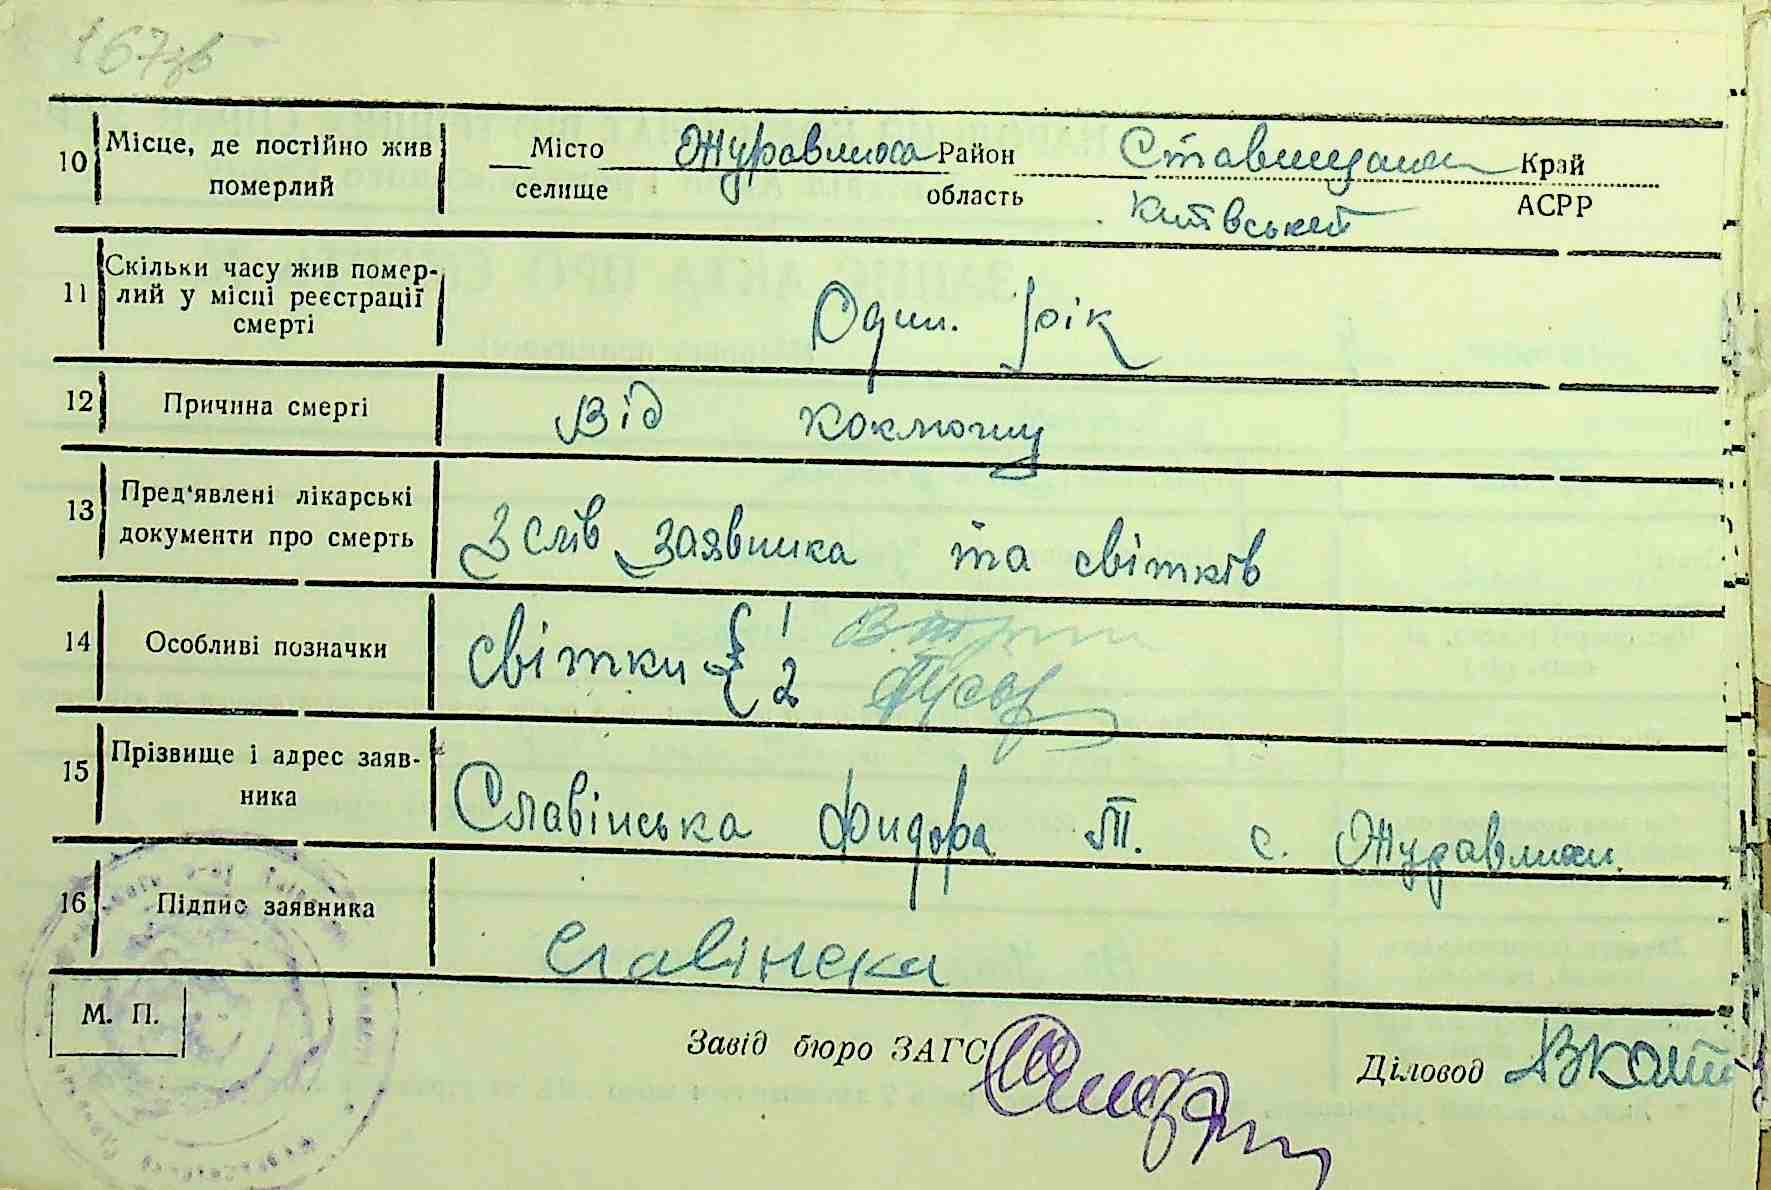 167зв
10 Місце, де постійно жив Місто Журавлиха Район Ставищанск Край
померлий селище область Київській АСРР
11 Скільки часу жив помер-
лий у місці реєстрації
смерті
Один. рік
12 Причина смерті Від коклюшу
13 Пред'явлені лікарські
документи про смерть
З слів заявника та світків
14 Особливі позначки світки { 1
2
15 Прізвище і адрес заяв-
ника
Славінська Фидора Т. с. Журавлихи.
16 Підпис заявника Славінска
М. П.
Завід бюро ЗАГС Діловод